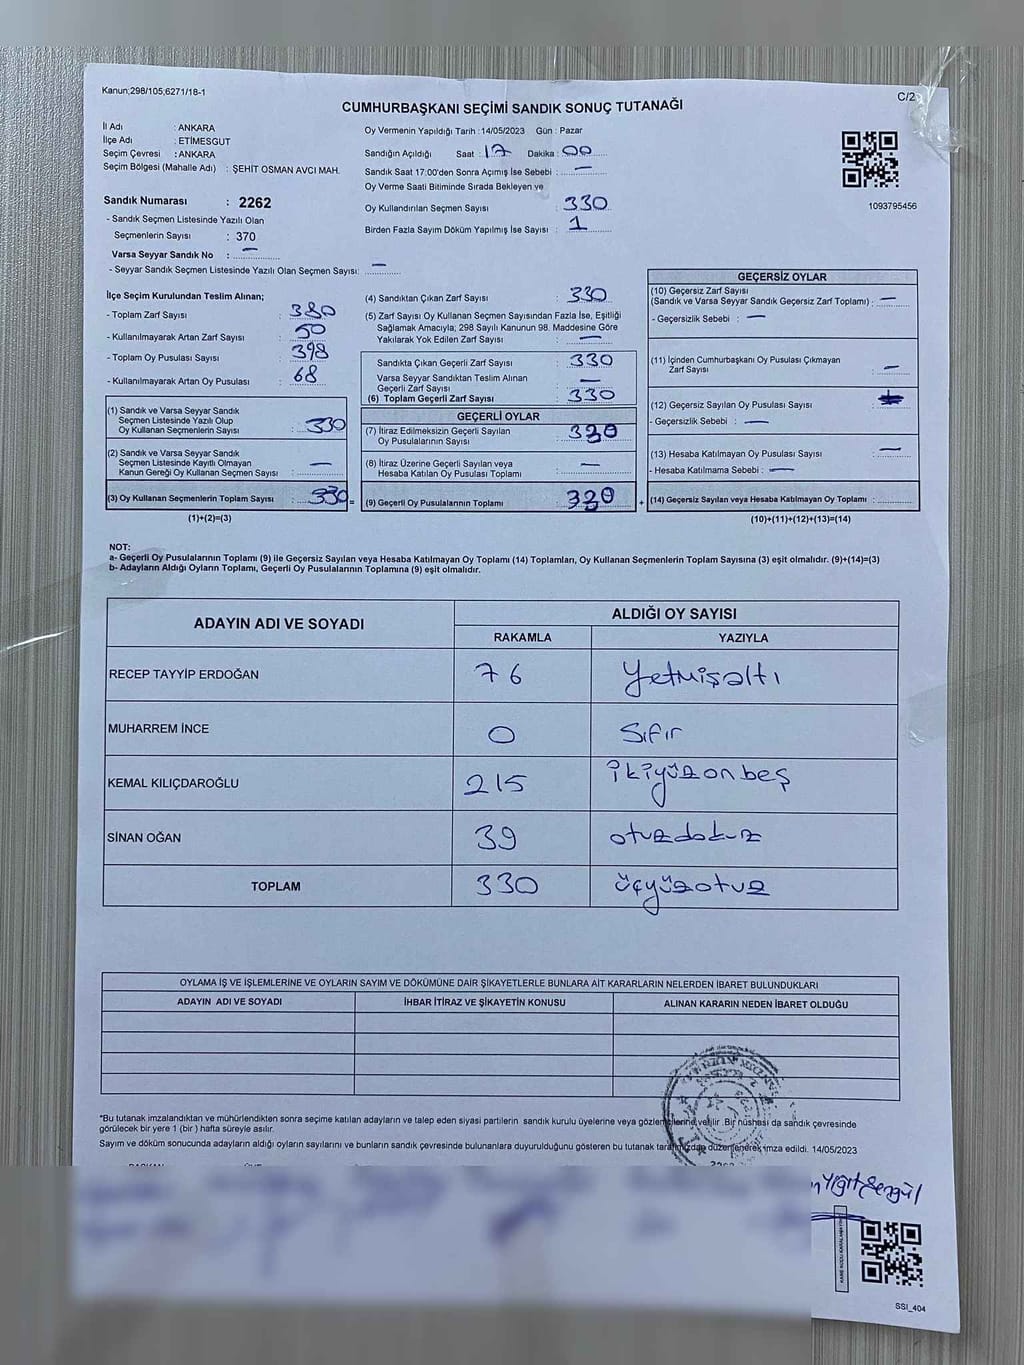 Kanun;298/105;6271/18-1
C/2
CUMHURBAŞKANI SEÇİMİ SANDIK SONUÇ TUTANAĞI
İl Adı : ANKARA
İlçe Adı : ETİMESGUT
Seçim Çevresi : ANKARA
Seçim Bölgesi (Mahalle Adı) : ŞEHİT OSMAN AVCI MAH.
Sandık Numarası : 2262
- Sandık Seçmen Listesinde Yazılı Olan
Seçmenlerin Sayısı : 370
Varsa Seyyar Sandık No : —
- Seyyar Sandık Seçmen Listesinde Yazılı Olan Seçmen Sayısı: —
Oy Vermenin Yapıldığı Tarih : 14/05/2023 Gün : Pazar
Sandığın Açıldığı Saat : 17 Dakika : 00
Sandık Saat 17:00'den Sonra Açımış İse Sebebi : —
Oy Verme Saati Bitiminde Sırada Bekleyen ve
Oy Kullandırılan Seçmen Sayısı : 330
Birden Fazla Sayım Döküm Yapılmış İse Sayısı : 1
1093795456
İlçe Seçim Kurulundan Teslim Alınan;
- Toplam Zarf Sayısı : 380
- Kullanılmayarak Artan Zarf Sayısı : 50
- Toplam Oy Pusulası Sayısı : 398
- Kullanılmayarak Artan Oy Pusulası : 68
(1) Sandık ve Varsa Seyyar Sandık
Seçmen Listesinde Yazılı Olup
Oy Kullanan Seçmenlerin Sayısı : 330
(2) Sandık ve Varsa Seyyar Sandık
Seçmen Listesinde Kayıtlı Olmayan
Kanun Gereği Oy Kullanan Seçmen Sayısı : —
(3) Oy Kullanan Seçmenlerin Toplam Sayısı : 330 =
(1)+(2)=(3)
(4) Sandıktan Çıkan Zarf Sayısı : 330
(5) Zarf Sayısı Oy Kullanan Seçmen Sayısından Fazla İse, Eşitliği
Sağlamak Amacıyla; 298 Sayılı Kanunun 98. Maddesine Göre
Yakılarak Yok Edilen Zarf Sayısı : —
Sandıkta Çıkan Geçerli Zarf Sayısı : 330
Varsa Seyyar Sandıktan Teslim Alınan
Geçerli Zarf Sayısı : —
(6) Toplam Geçerli Zarf Sayısı : 330
GEÇERLİ OYLAR
(7) İtiraz Edilmeksizin Geçerli Sayılan
Oy Pusulalarının Sayısı :
(8) İtiraz Üzerine Geçerli Sayılan veya
Hesaba Katılan Oy Pusulası Toplamı : —
(9) Geçerli Oy Pusulalarının Toplamı : +
GEÇERSİZ OYLAR
(10) Geçersiz Zarf Sayısı
(Sandık ve Varsa Seyyar Sandık Geçersiz Zarf Toplamı) : —
- Geçersizlik Sebebi : —
(11) İçinden Cumhurbaşkanı Oy Pusulası Çıkmayan
Zarf Sayısı : —
(12) Geçersiz Sayılan Oy Pusulası Sayısı :
- Geçersizlik Sebebi : —
(13) Hesaba Katılmayan Oy Pusulası Sayısı : —
- Hesaba Katılmama Sebebi : —
(14) Geçersiz Sayılan veya Hesaba Katılmayan Oy Toplamı :
(10)+(11)+(12)+(13)=(14)
NOT:
a- Geçerli Oy Pusulalarının Toplamı (9) ile Geçersiz Sayılan veya Hesaba Katılmayan Oy Toplamı (14) Toplamları, Oy Kullanan Seçmenlerin Toplam Sayısına (3) eşit olmalıdır. (9)+(14)=(3)
b- Adayların Aldığı Oyların Toplamı, Geçerli Oy Pusulalarının Toplamına (9) eşit olmalıdır.
ADAYIN ADI VE SOYADI ALDIĞI OY SAYISI
RAKAMLA YAZIYLA
RECEP TAYYİP ERDOĞAN 76 Yetmişaltı
MUHARREM İNCE 0 Sıfır
KEMAL KILIÇDAROĞLU 215 ikiyüzonbeş
SİNAN OĞAN 39 otuzdokuz
TOPLAM 330 üçyüzotuz
OYLAMA İŞ VE İŞLEMLERİNE VE OYLARIN SAYIM VE DÖKÜMÜNE DAİR ŞİKAYETLERLE BUNLARA AİT KARARLARIN NELERDEN İBARET BULUNDUKLARI
ADAYIN ADI VE SOYADI İHBAR İTİRAZ VE ŞİKAYETİN KONUSU ALINAN KARARIN NEDEN İBARET OLDUĞU
*Bu tutanak imzalandıktan ve mühürlendikten sonra seçime katılan adayların ve talep eden siyasi partilerin sandık kurulu üyelerine veya gözlemcilerine verilir. Bir nüshası da sandık çevresinde
görülecek bir yere 1 (bir) hafta süreyle asılır.
Sayım ve döküm sonucunda adayların aldığı oyların sayılarını ve bunların sandık çevresinde bulunanlara duyurulduğunu gösteren bu tutanak tarafımızdan düzenlenerek imza edildi. 14/05/2023
SSI_404